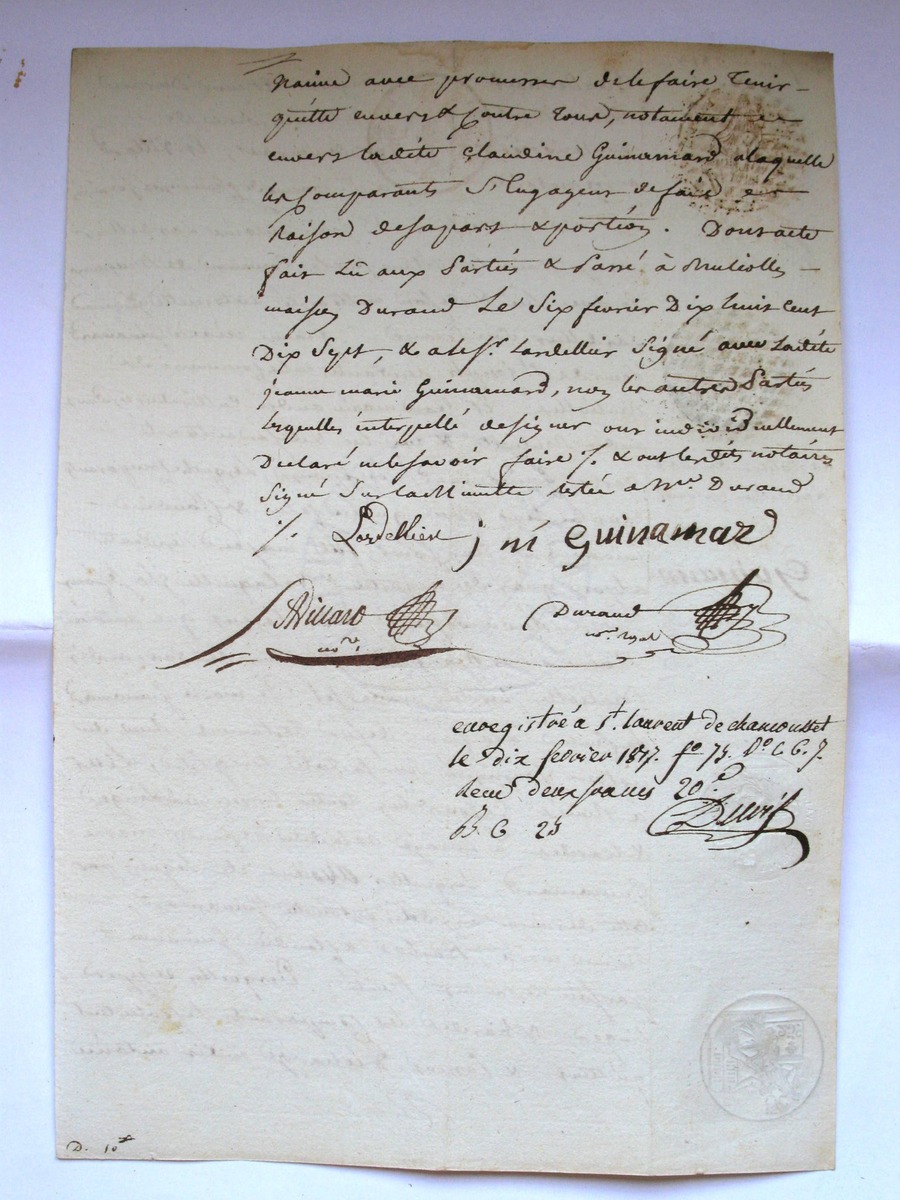 naime avec promesse de le faire tenir
quitte envers & contre tous, notament
envers ladite Claudine Guinamard a laquelle
les Comparants S'Engagent de faire
Raison de sa part & portion. Dont acte
fait Lû aux Parties & Passé à
maison Durand Le Six fevrier Dix huit Cent
Dix Sept, & a le Sr. Lardellier Signé avec Ladite
jeanne marie Guinamard, non les autres Parties
lesquelles interpellé de signer ont individuellement
Declaré ne le savoir faire /. & ont lesdits notaires
Signé Sur la Minutte restée a Mre. Durand
/. Lardellier j m Guinamard
Villard Durand
nore. nore. Royal
enregistré a St. laurent de chamousset
le dix fevrier 1817. fo 75. Vo. C 6. 7.
Recu deux francs 20c.
B. C 23
D. 10